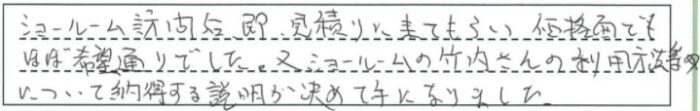 ショールーム訪問后、即、見積りに来てもらい価格面でも
ほぼ希望通りでした。又ショールームの竹内さんの利用方法等
について納得する説明が決めて手になりました。